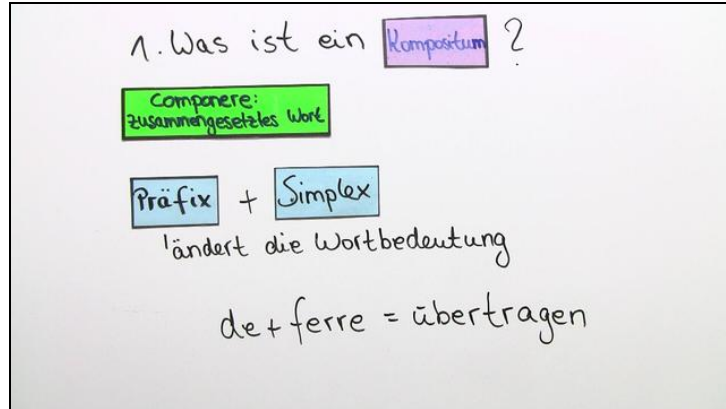 1. Was ist ein Kompositum ?
Componere:
zusammengesetztes Wort
Präfix + Simplex
ändert die Wortbedeutung
de + ferre = übertragen